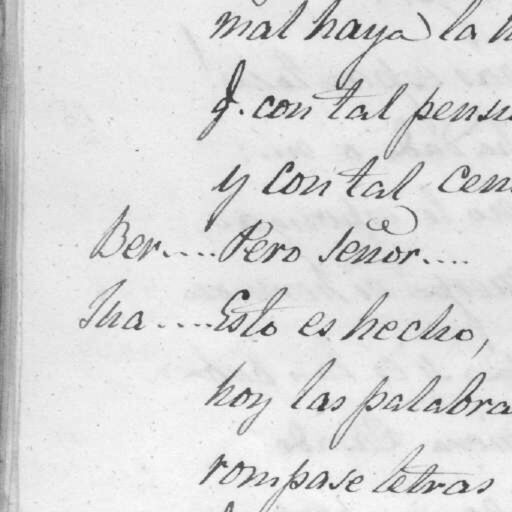 mal haya la
q. con tal pens
y con tal cen
Ber....Pero Señor....
Jua....Esto es hecho,
hoy las palabra
rompase letras